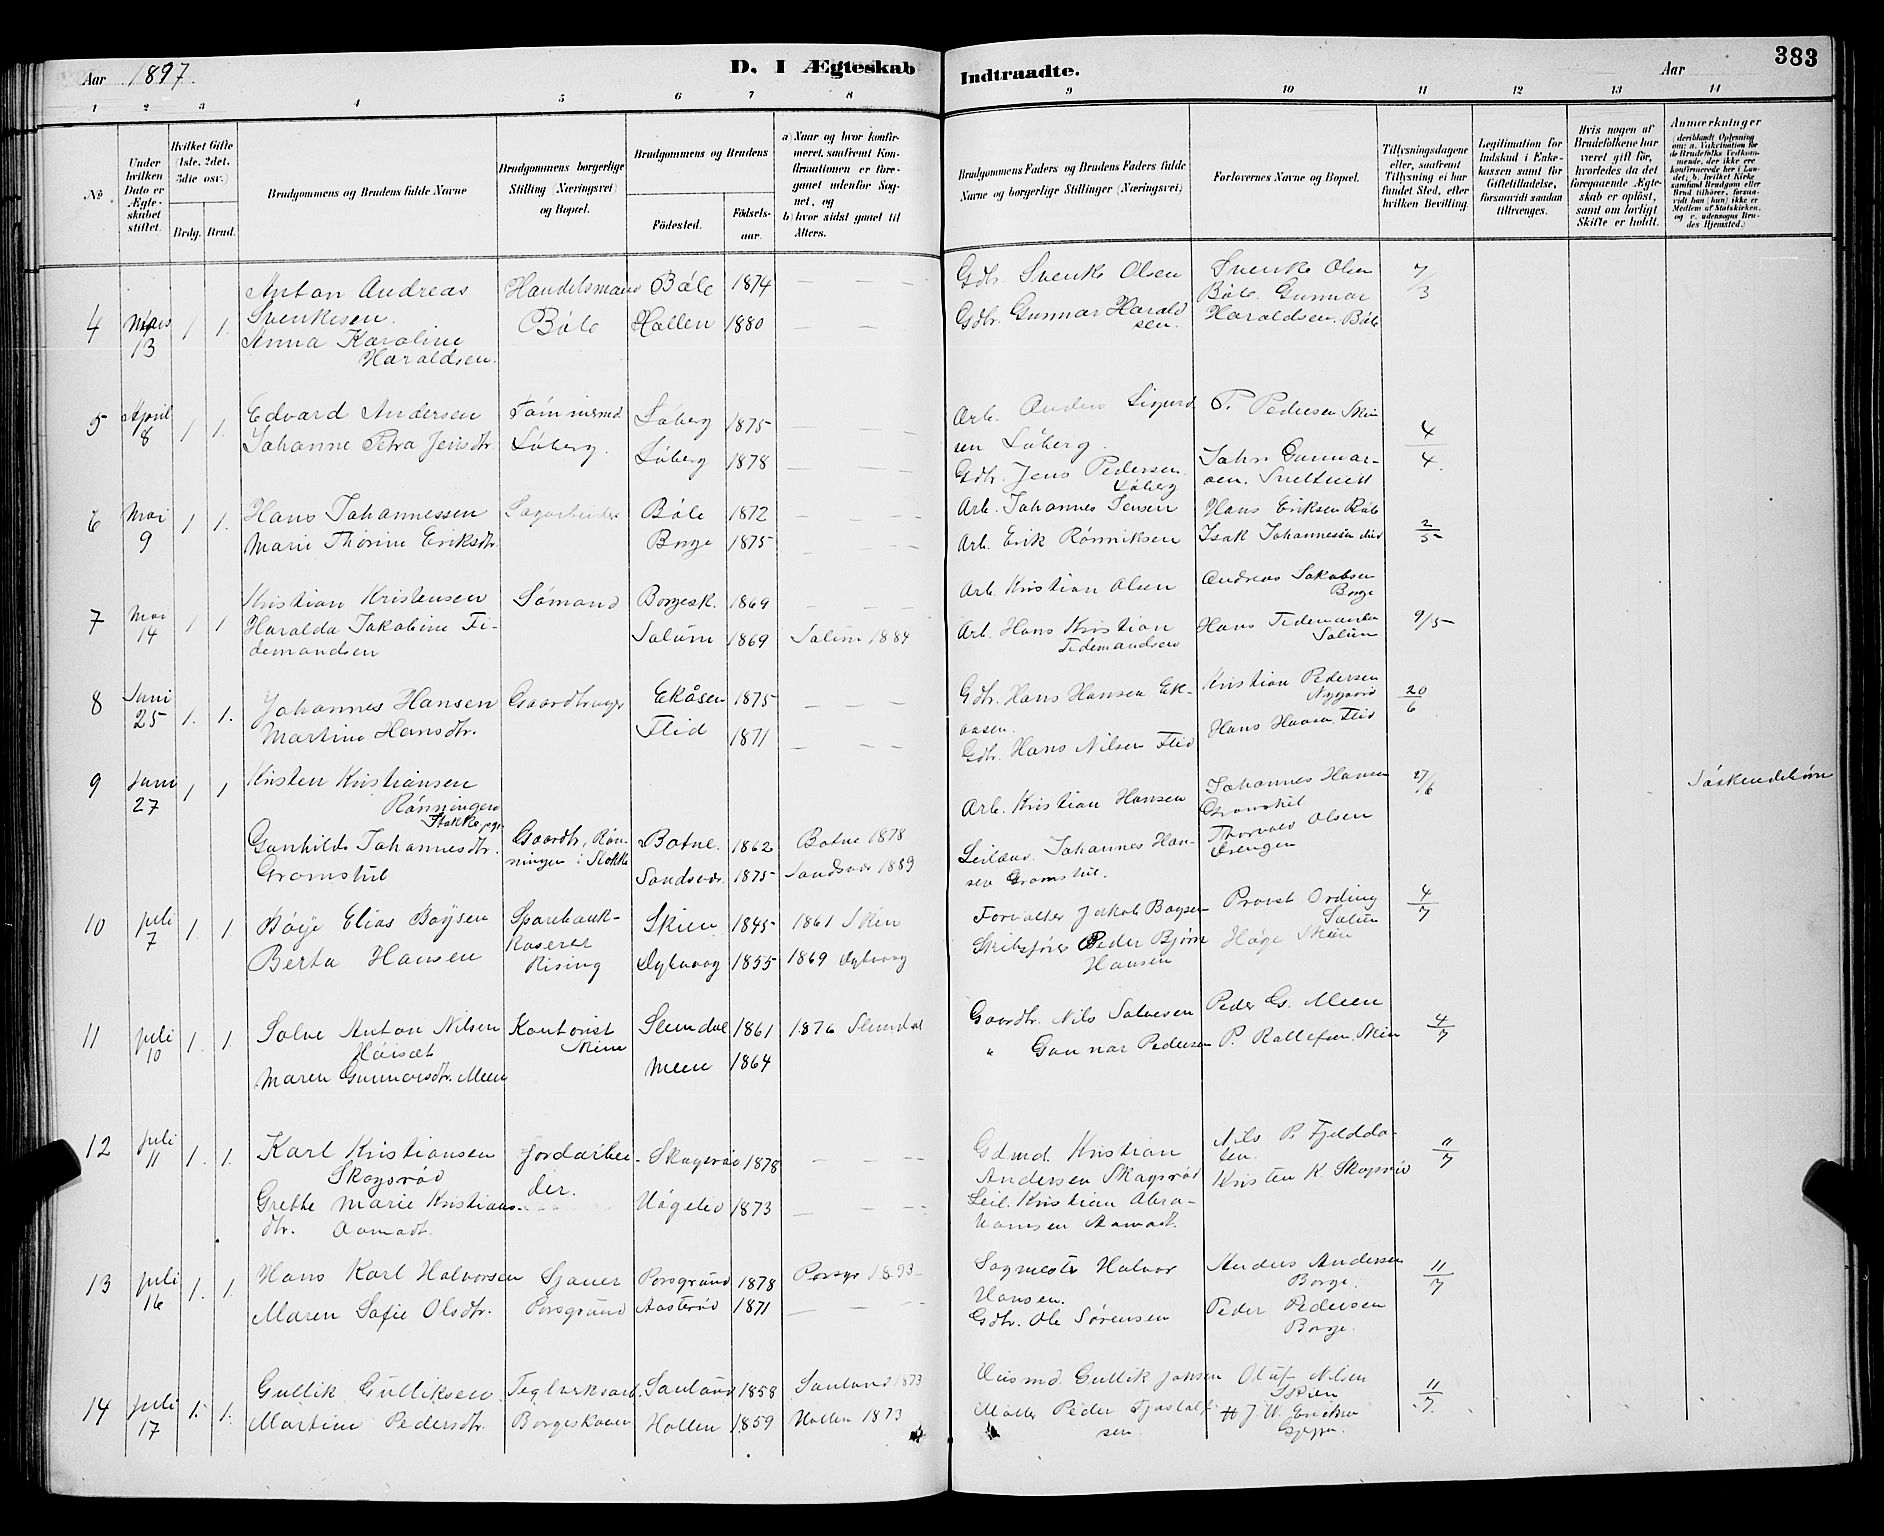 Aar 1897.
D. I Ægteskab Indtraadte.
Aar
383
1 2 3 4 5 6 7 8 9 10 11 12 13 14
No.
Under hvilken Dato er Ægteskabet stiftet.
Hvilket Gifte (1ste, 2det, 3die osv.)
Brdg. Brud.
Brudgommens og Brudens fulde Navne
Brudgommens borgerlige Stilling (Næringsvei) og Bopæl.
Brudgommens og Brudens
Fødested.
Fødselsaar.
a) Naar og hvor konfirmeret, saafremt Konfirmationen er foregaaet udenfor Sognet, og
b) hvor sidst gaaet til Alters.
Brudgommens Faders og Brudens Faders fulde Navne og borgerlige Stillinger (Næringsvei)
Forlovernes Navne og Bopæl.
Tillysningsdagene eller, saafremt Tillysning ei har fundet Sted, efter hvilken Bevilling.
Legitimation for Indskud i Enkekassen samt for Giftetilladelse, forsaavidt saadan tiltrænges.
Hvis nogen af Brudefolkene har været gift før, hvorledes da det foregaaende Ægteskab er opløst, samt om lovligt Skifte er holdt.
Anmærkninger
(deriblandt Oplysning om: a. Vakcination for de Brudefolks Vedkommende, der ikke ere konfirmerede her i Landet; b. hvilket Kirkesamfund Brudgom eller Brud tilhører, forsaavidt han (hun) ikke er Medlem af Statskirken, og c. udensogns Brudes Hjemsted.)
4 Mars 13 1 1. Anton Andreas Svenkesen. Handelsmand Bøle Bøle 1874 — — — Gdbr. Svenke Olsen Svenke Olsen Bøle. 7/3
Anna Karoline Haraldsen. Hollen 1880 — — — Gdbr. Gunnar Haraldsen. Gunnar Haraldsen. Bøle
5 April 8 1 1. Edvard Andersen Tømmermd. Løberg. Løberg 1875 — — — Arb. Anders Sigurdsen Løberg. P. Pedersen Skien 4/4.
Johanne Petra Jensdtr. Løberg 1878 — — — Gdbr. Jens Pedersen Løberg John Gunnarsen.
6 Mai 9 1 1. Hans Johannessen Sagarbeider Bøle 1872 — — — Arb. Johannes Jensen Hans Eriksen Bøle 2/5
Marie Thorine Eriksdtr. Borge 1875 — — — Arb. Erik Rønniksen Isak Johannessen
7 Mai 14 1 1 Kristian Kristensen Sømand Borgesk. 1869 — — — Arb. Kristian Olsen Andreas Jakobsen Borge 9/5
Haralda Jakobine Tidemandsen Solum 1869 Solum 1884 Arb. Hans Kristian Tidemandsen Hans Tidemandsen Solum
8 Juni 25 1. 1. Johannes Hansen Gaardbruger Ekåsen 1875 — — — Gdbr. Hans Hansen Ekaasen. Kristian Pedersen Nygaard 20/6
Martine Hansdtr. Flid 1871 — — — Gdbr. Hans Nilsen Flid Hans Hansen Flid
9 Juni 27 1 1 Kristen Kristiansen Rønningen Stokke pgr. Gaardbr. Rønningen i Stokke Botne. 1862 Botne 1878 Arb. Kristian Hansen Johannes Hansen Gromstul 27/6 Søskendebørn
Gunhild Johannesdtr. Gromstul Sandsvær. 1875 Sandsvær 1889 Leilænd. Johannes Hansen Gromstul. Thorvald Olsen
10 juli 7 1. 1 Bøye Elias Boysen Sparebankkaserer Rising Skien 1845 1861 Skien Forvalter Jakob Boysen Provst Ording Solum 4/7
Berta Hansen Dybvaag 1855 1869 Dybvaag Skibsfører Peder Bjørn Hansen Høge Skien
11 juli 10 1. 1 Solve Anton Nilsen Høisæt Kontorist Skien Slemdal 1861 1876 Slemdal Gaardbr. Nils Solvesen Peder G. Meen 4/7
Maren Gunnarsdtr. Meen Meen 1864 " Gunnar Pedersen P. Rollefsen. Skien
12 juli 11 1. 1. Karl Kristiansen Skogsrød Jordarbeider. Skogsrød 1878 — — — Gdmd. Kristian Andersen Skogsrød Nils P. Fjelddalen. 11/7
Grethe Marie Kristiansdtr. Aamodt. 1873 — — — Leil. Kristian Abrahamsen Aamodt. Kristen K. Skogsrød
13 juli 16 1. 1 Hans Karl Halvorsen Sjauer Porsgrund Porsgrund 1878 Porsgr 1893 Sagmester Halvor Hansen. Anders Andersen Borge. 11/7
Maren Sofie Olsdtr. Aasterød 1871 — — — Gdbr. Ole Sørensen Peder Pedersen Borge.
14 juli 17 1. 1. Gullik Gulliksen Teglverksarb. Borgeskaan Sauland 1858 Sauland 1873 Husmd. Gullik Jonsen Oluf Nilsen Skien 11/7.
Martine Pedersdtr. Hollen 1859 Hollen 1873 Møller Peder